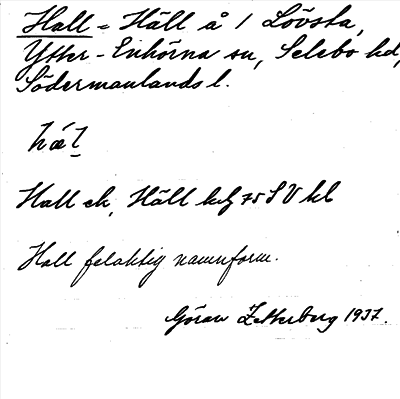 Hall = Häll å / Lövsta,
Ytter-Enhörna sn, Selebo hd,
Södermanlands l.
hǽl
Hall ek, Häll hrlg 75 SV kbl
Hall felaktig namnform.
Göran Zetterberg 1937.